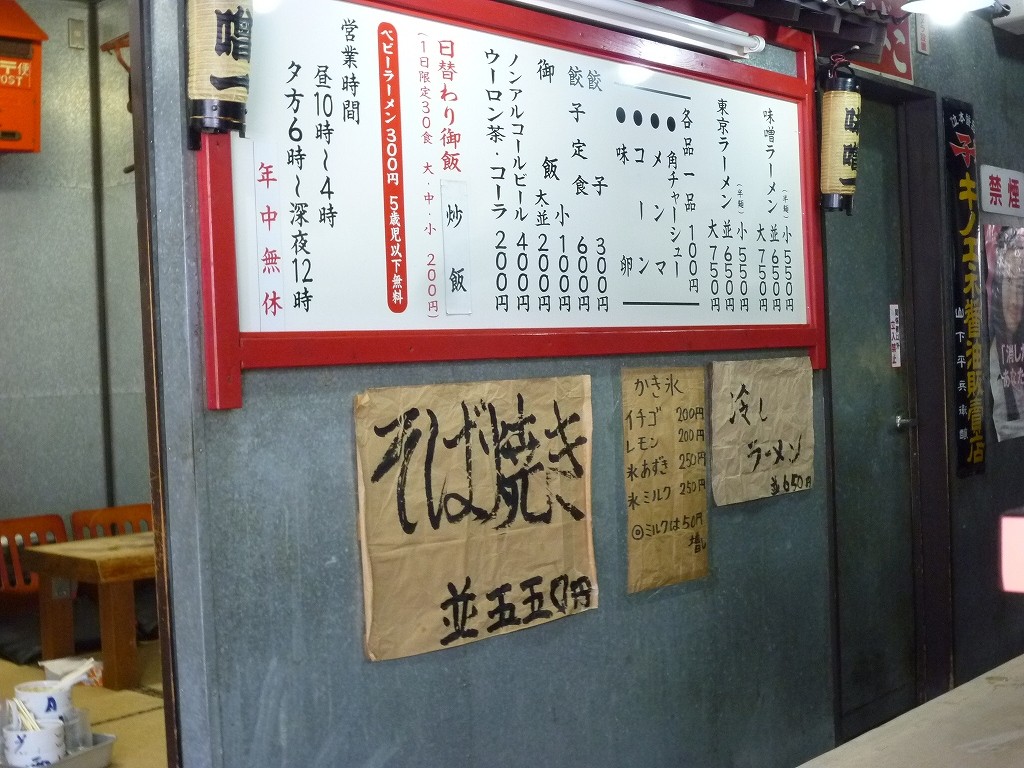 味噌ラーメン(半麺) 小550円
並650円
大750円
東京ラーメン(半麺) 小550円
並650円
大750円
各品一品100円
●角チャーシュー
●メンマ
●コーン
●味卵
餃子 300円
餃子定食 600円
御飯 小100円
大並200円
ノンアルコールビール 400円
ウーロン茶・コーラ 200円
日替わり御飯 炒飯
(1日限定30食 大・中・小 200円)
ベビーラーメン300円 5歳児以下無料
営業時間
昼10時〜4時
夕方6時〜深夜12時
年中無休
噌一
味噌一
そば焼き
並五五〇円
かき氷
イチゴ 200円
レモン 200円
氷あずき 250円
氷ミルク 250円
◎ミルクは50円
増し
冷し
ラーメン
並650円
禁煙
キノエ子醤油販賣店
山下平兵衛
〒便
POST